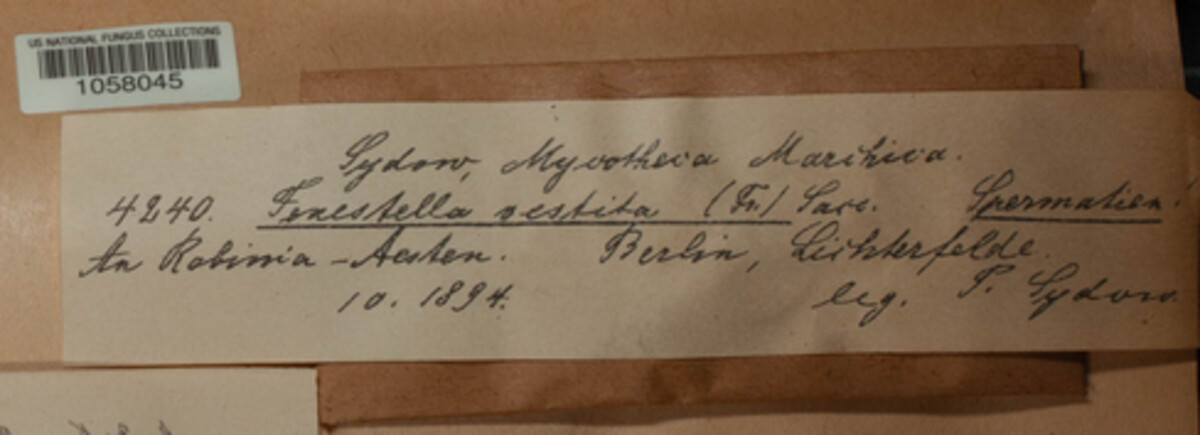 US NATIONAL FUNGUS COLLECTIONS
1058045
Sydow, Mycotheca Marchica.
4240. Fenestella vestita (Fr.) Sacc. Spermatien!
An Robinia-Aesten. Berlin, Lichterfelde.
10. 1894. leg. P. Sydow.